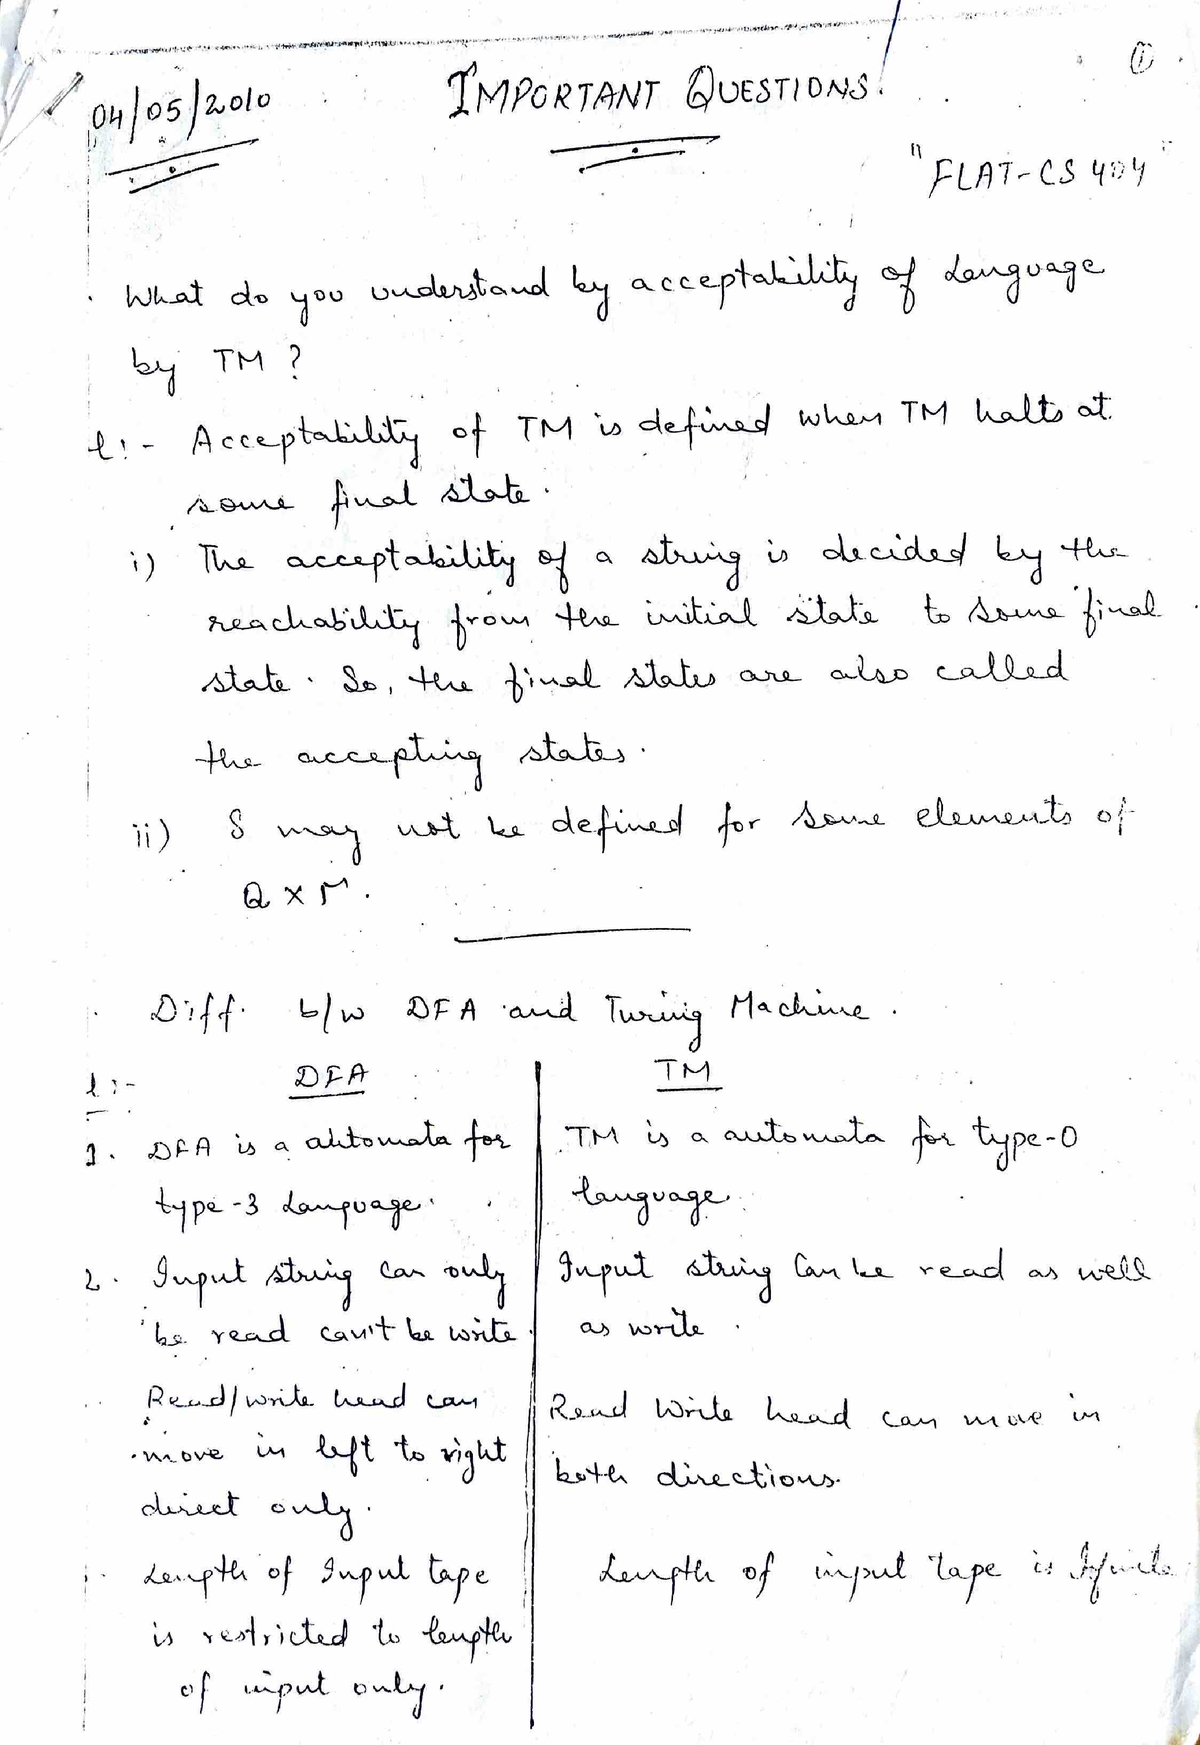 ①
04/05/2010
IMPORTANT QUESTIONS.
"FLAT-CS 404"
. What do you understand by acceptability of Language
by TM ?
l:- Acceptability of TM is defined when TM halts at
some final state.
i) The acceptability of a string is decided by the
reachability from the initial state to some final
state. So, the final states are also called
the accepting states.
ii) δ may not be defined for some elements of
Q × Γ.
. Diff. b/w DFA and Turing Machine.
l:-
DFA
TM
1. DFA is a automata for
type-3 Language.
TM is a automata for type-0
language.
2. Input string can only
be read can't be write.
Input string can be read as well
as write.
Read/write head can
move in left to right
direct only.
Read Write head can move in
both directions.
Length of Input tape
is restricted to length
of input only.
Length of input Tape is Infinite